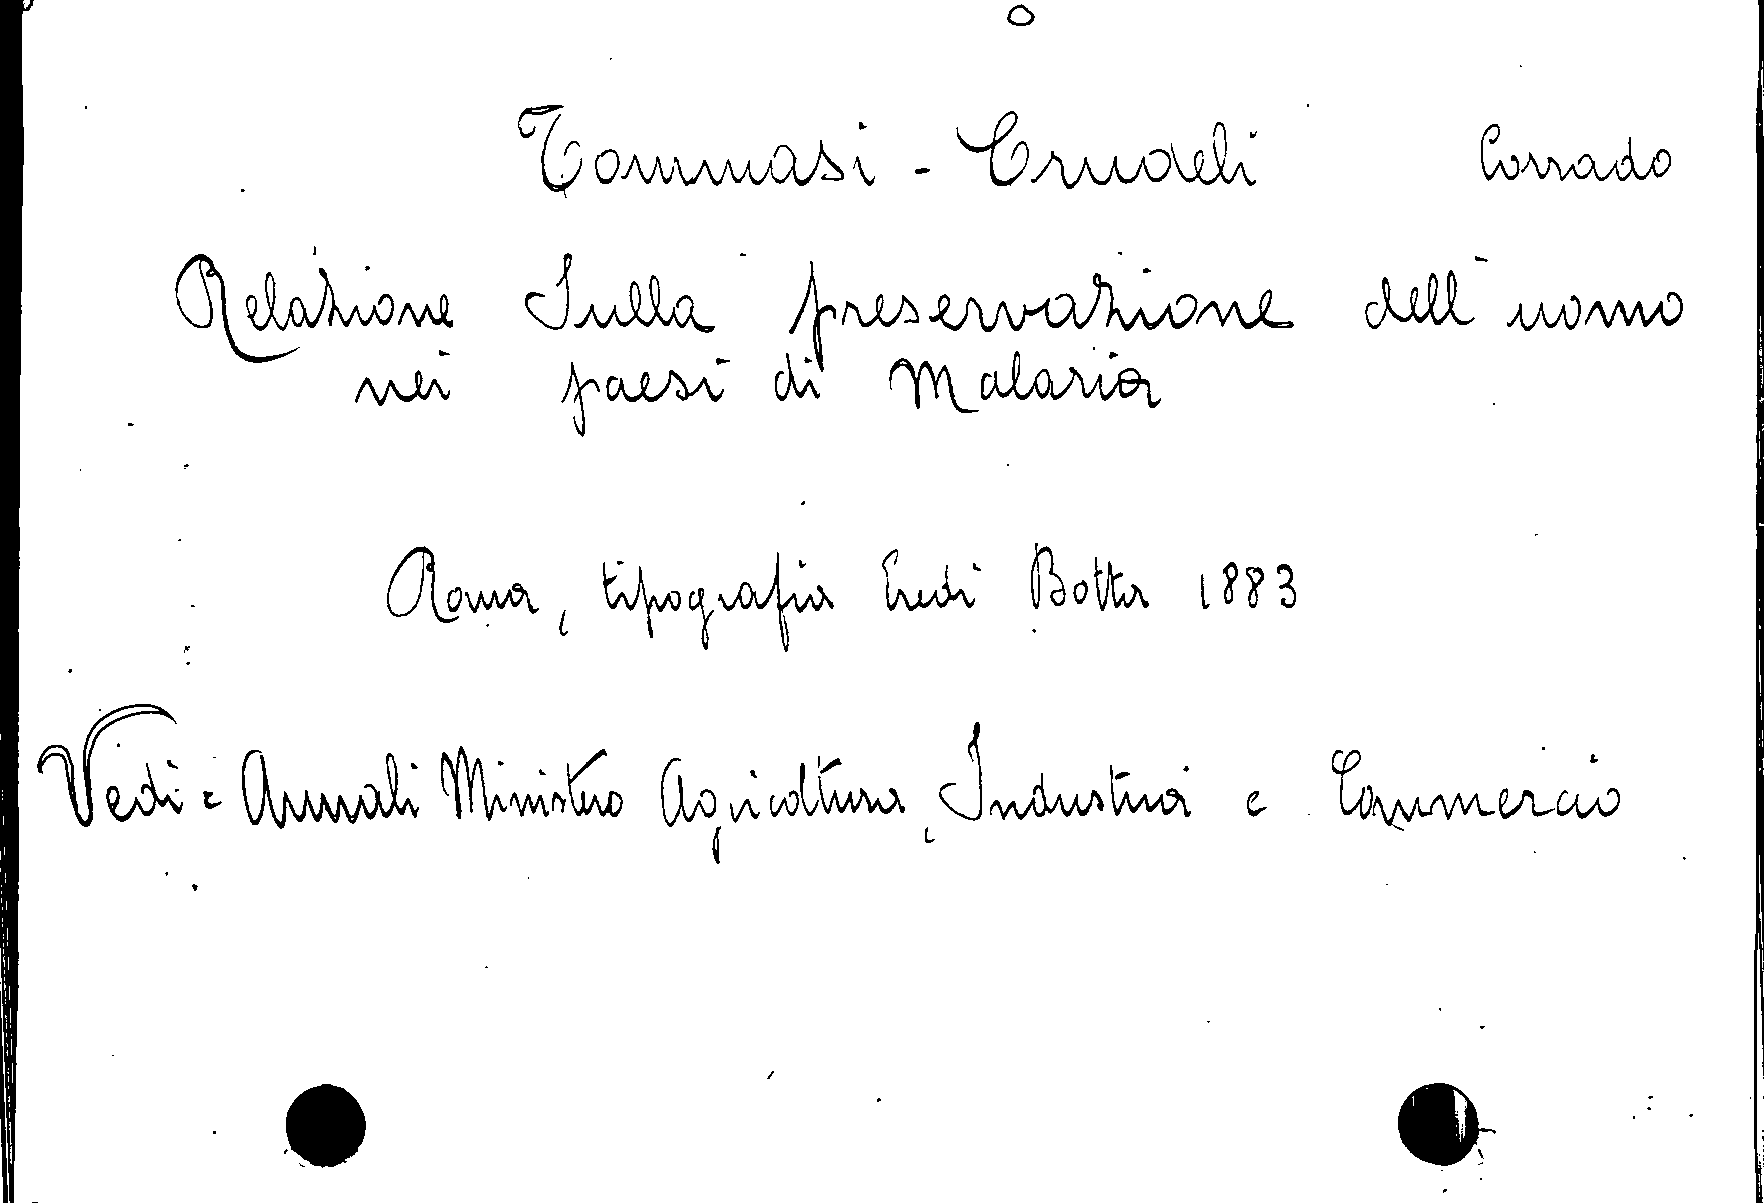 Tommasi - Crudeli Corrado
Relazione Sulla preservazione dell'uomo
nei paesi di Malaria
Roma, tipografia Eredi Botta 1883
Vedi = Annali Ministero Agricoltura, Industria e Commercio